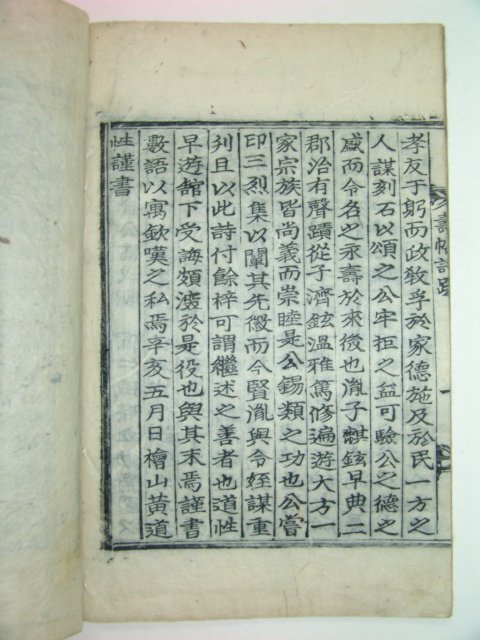 孝友于躬而政敎孚於家德施及於民一方之
人謀刻石以頌之公牢拒之益可驗公之德之
盛而令名之永壽於來後也胤子麒鉉早典二
郡治有聲蹟從子濟鉉溫雅篤修遍遊大方一
家宗族皆尙義而崇睦是公錫類之功也公嘗
印三烈集以闡其先徽而今賢胤與令姪謀重
刋且以此詩付餘梓可謂繼述之善者也道性
早遊館下受誨頗深於是役也與其末焉謹書
數語以寓欽嘆之私焉辛亥五月日檜山黃道
性謹書